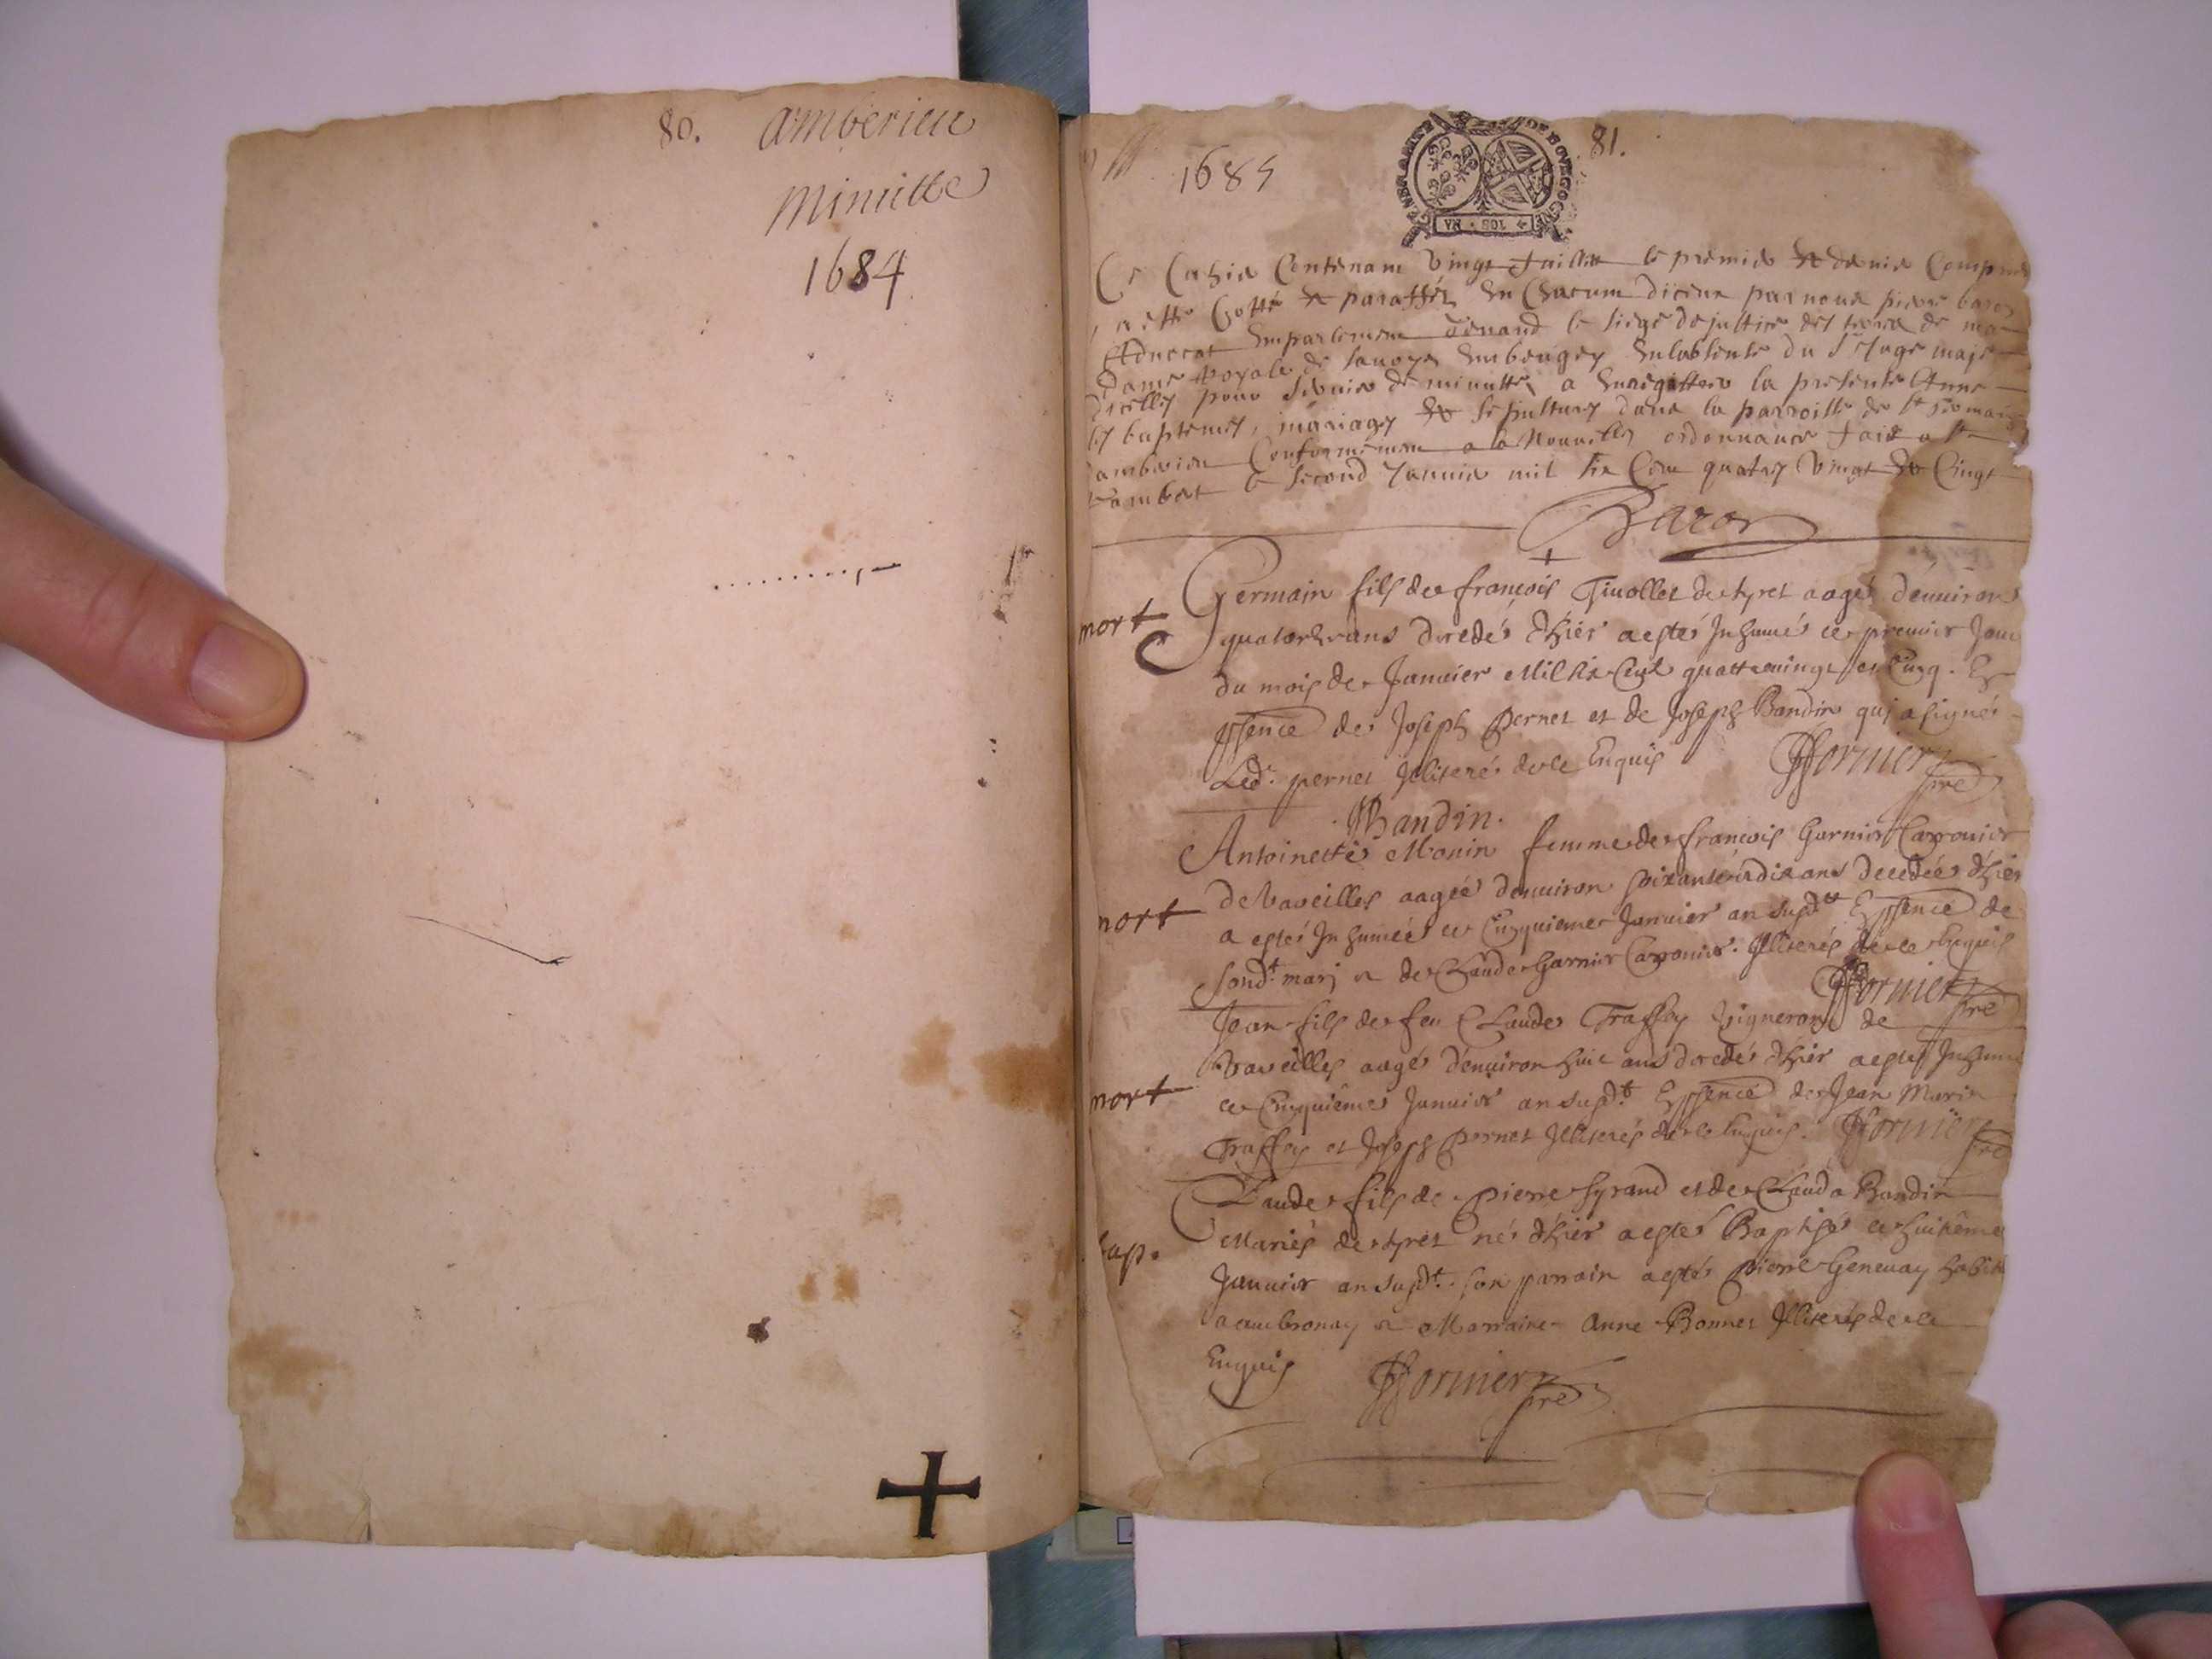 80. amberieu
minutte
1684
1685
81.
VN SOL 4
Ce Cahier Contenant Vingt fueillet le premier et dernier Compris
a esté Cotté et paraffés En Chacun diceux par nous pierre baron
Advocat Emparlement tenant le siege de justice des terres de ma
dame Royale de sauoye Enbeugey Enlabsence du Sr Juge maje
dicelles pour seruir de minutte a Enregistrer la presente Année
les baptemes, mariages et sepultures dans la parroisse de st Germain
damberieu Conformement a la Nouuelle ordonnance faict a st
rambert le second Januier mil six Cent quatre Vingt et Cinqt
Baron
mort
Germain fils de francois Tiuollet de tiret aagé d'enuiron
quatorze ans decedé dhier a esté Inhumé ce premier Jour
du mois de Januier Mil six Cent quattreuingt et Cinq. En
pñence de Joseph Pernet et de Joseph Bandin quj a signé
Led. pernet Illiteré de ce Enquis
JBandin.
Fornier
pre
mort
Antoinette Monin femme de francois Garnier
de Vareilles aagée d'enuiron soixante et dix ans decedée dhier
a esté Inhumée ce Cinquieme Januier an susdt En pñence de
sondt marj et de Claude Garnier Illiterés de ce Enquis
Fornier
pre
mort
Jean fils de feu Claude Traffey Vigneron de
Vareilles aagé d'enuiron huit ans decedé dhier a esté Inhumé
ce Cinquième Januier an susdt En pñence de Jean Marin
Traffey et Joseph Pernet Illiterés de ce Enquis. Fornier
pre
bap.
Claude fils de Pierre Syrand et de Clauda Bandin
Mariés de tiret né dhier a esté Baptisé ce huitième
Januier an susdt. son parrain a esté Pierre Geneuay habitt
a ambronay et Marraine Anne Bonnet Illiterés de ce
Enquis
Fornier
pre